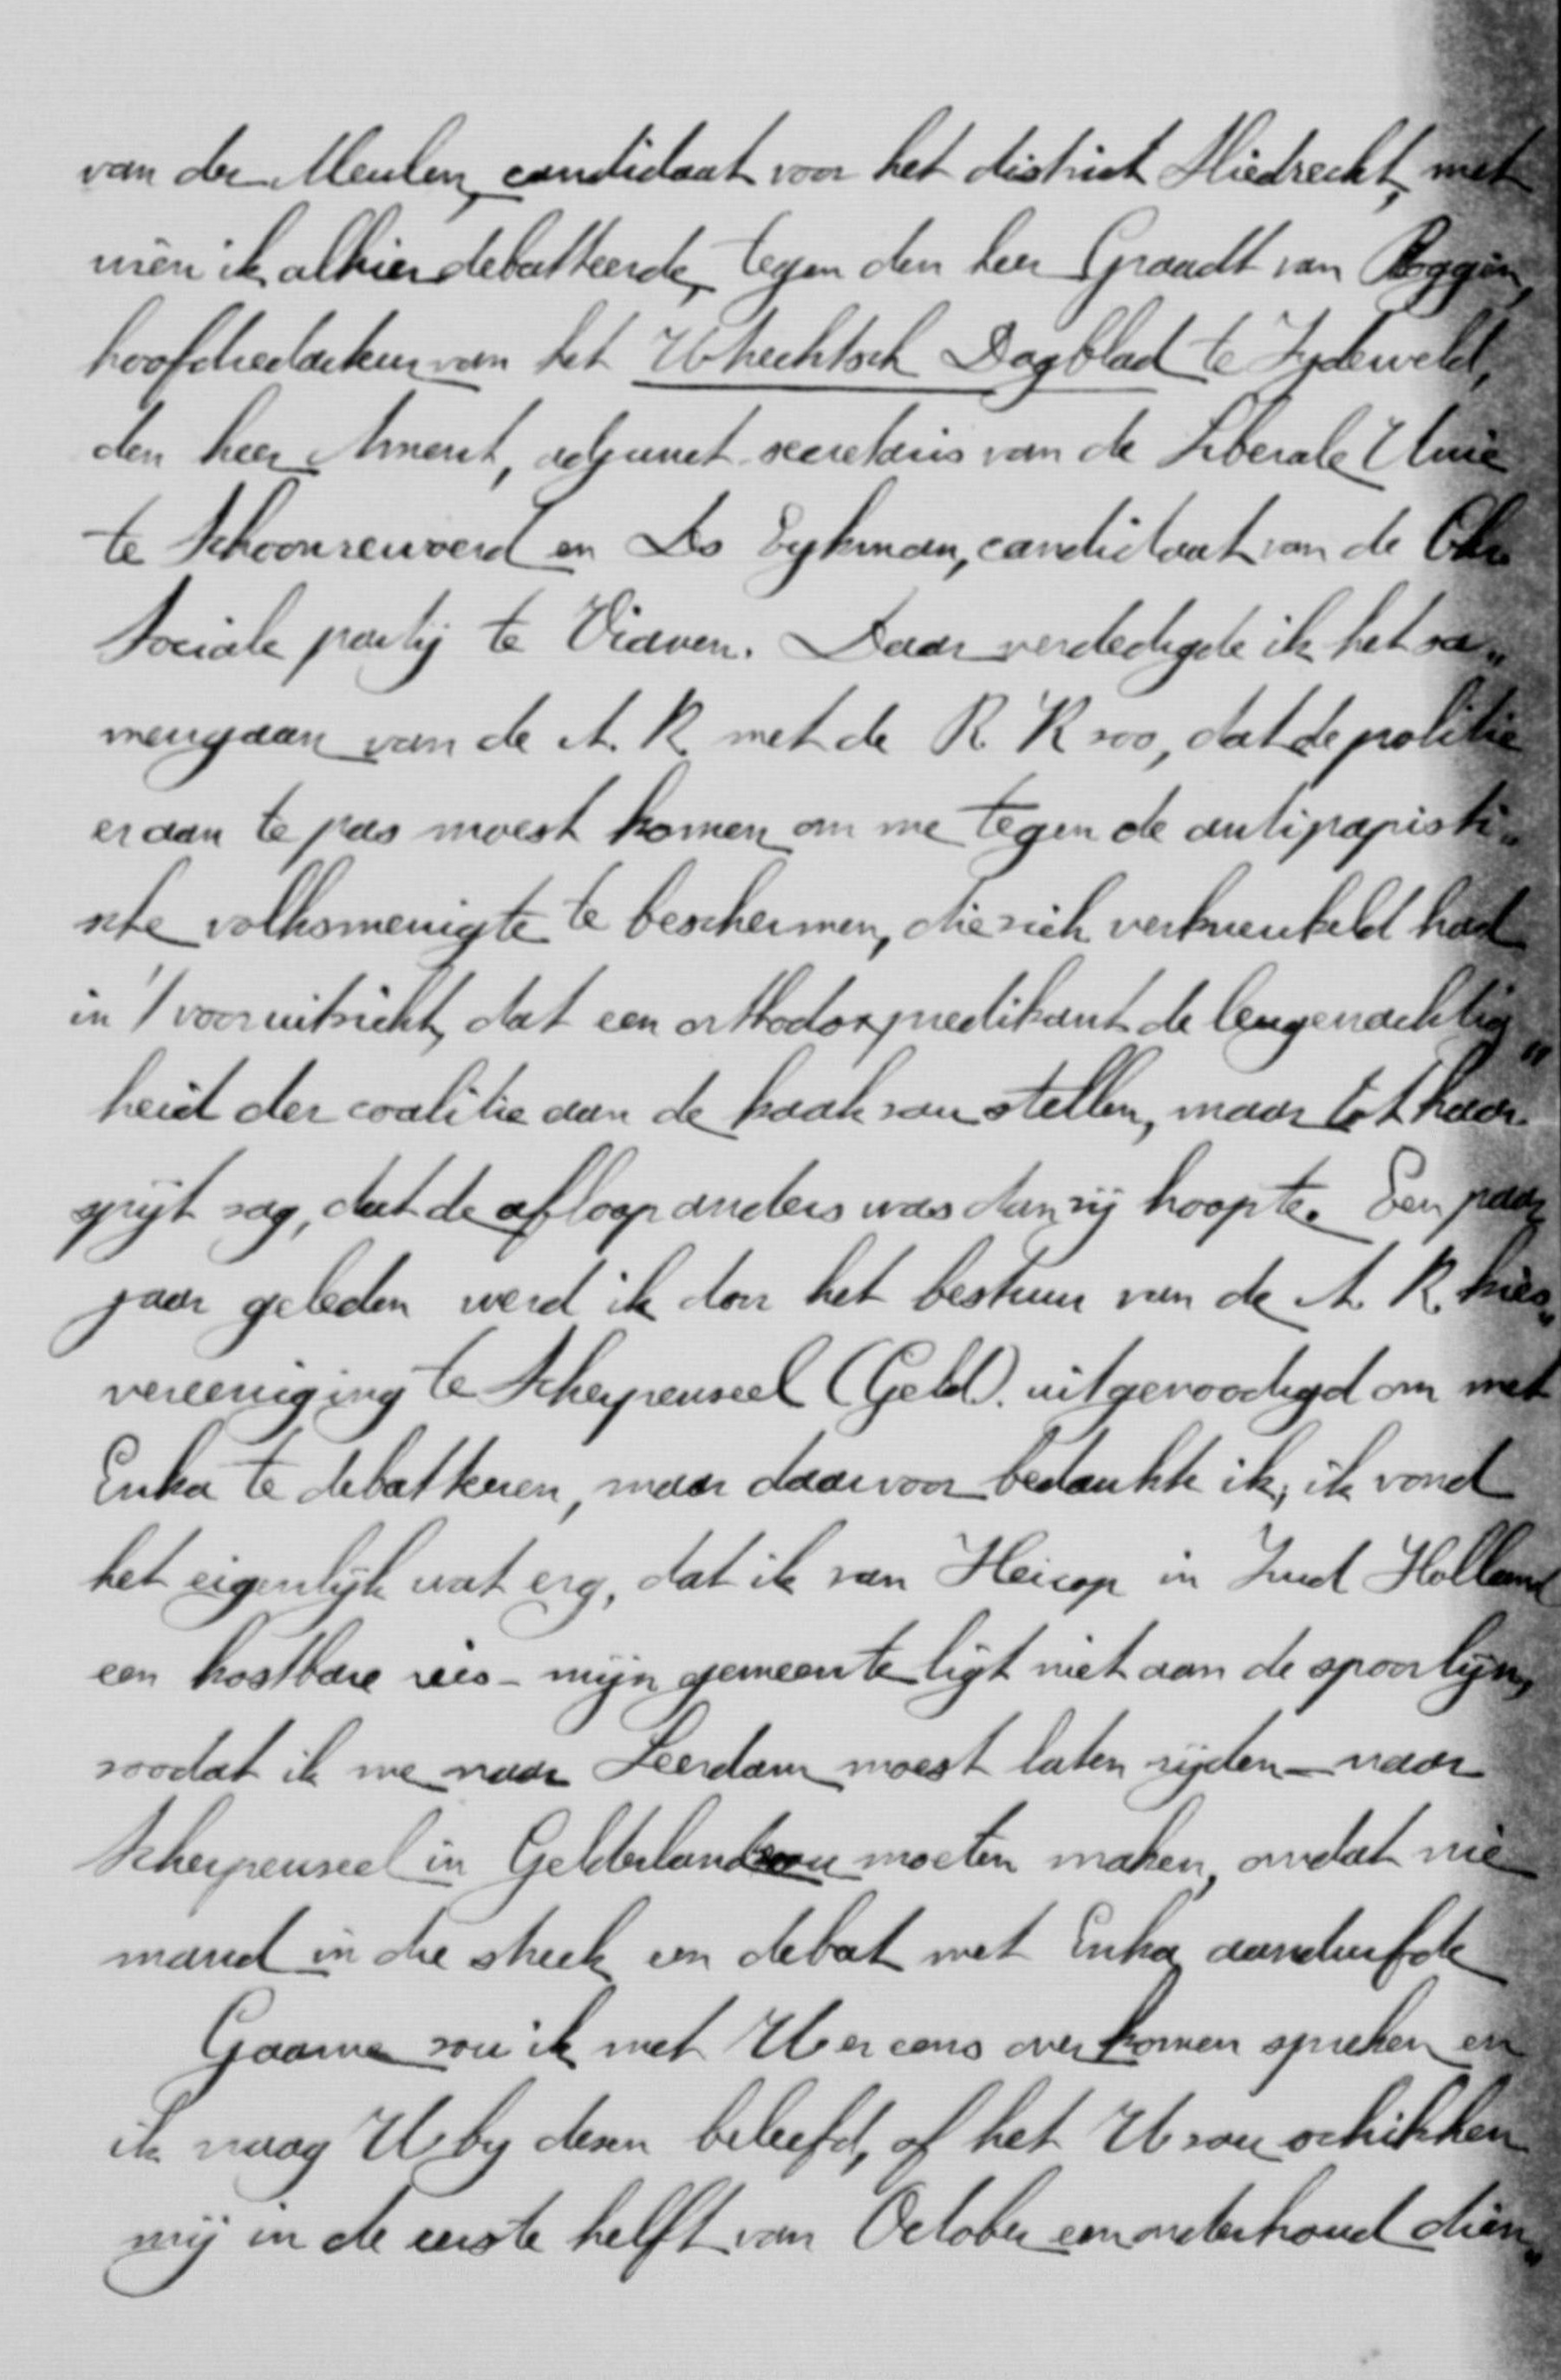 van der Meulen, candidaat voor het district Sliedrecht, met
wien ik alhier debatteerde, tegen den heer Graadt van Roggen,
hoofdredacteur van het Utrechtsch Dagblad te Zijdeveld,
den heer Ament, adjunct-secretaris van de Liberale Unie
te Schoonrewoerd en Ds Eykman, candidaat van de Chr.
Sociale partij te Vianen. Daar verdedigde ik het sa„
mengaan van de A. R. met de R. K zoo, dat de politie
er aan te pas moest komen om me tegen de antipapisti„
sche volksmenigte te beschermen, die zich verkneukeld had
in 't vooruitzicht, dat een orthodox predikant de leugenachtig„
heid der coalitie aan de kaak zou stellen, maar tot haar
spijt zag, dat de afloop anders was dan zij hoopte. Een paar
jaar geleden werd ik door het bestuur van de A. R. kies„
vereeniging te Scherpenzeel (Geld). uitgenoodigd om met
Enka te debatteren, maar daarvoor bedankte ik; ik vond
het eigenlijk wat erg, dat ik van Heicop in Zuid Holland
een kostbare reis - mijn gemeente ligt niet aan de spoorlijn,
zoodat ik me naar Leerdam moest laten rijden - naar
Scherpenzeel in Gelderland zou moeten maken, omdat nie
mand in die streek een debat met Enka aandurfde
Gaarne zou ik met U er eens over komen spreken en
ik vraag U by dezen beleefd, of het U zou schikken
mij in de eerste helft van October een onderhoud dien„